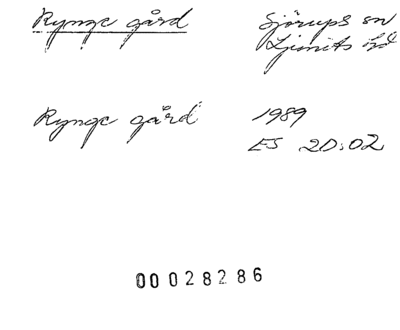 Rynge gård
Sjörups sn
Ljunits hd
Rynge gård
1989
ES 2D:02
00028286